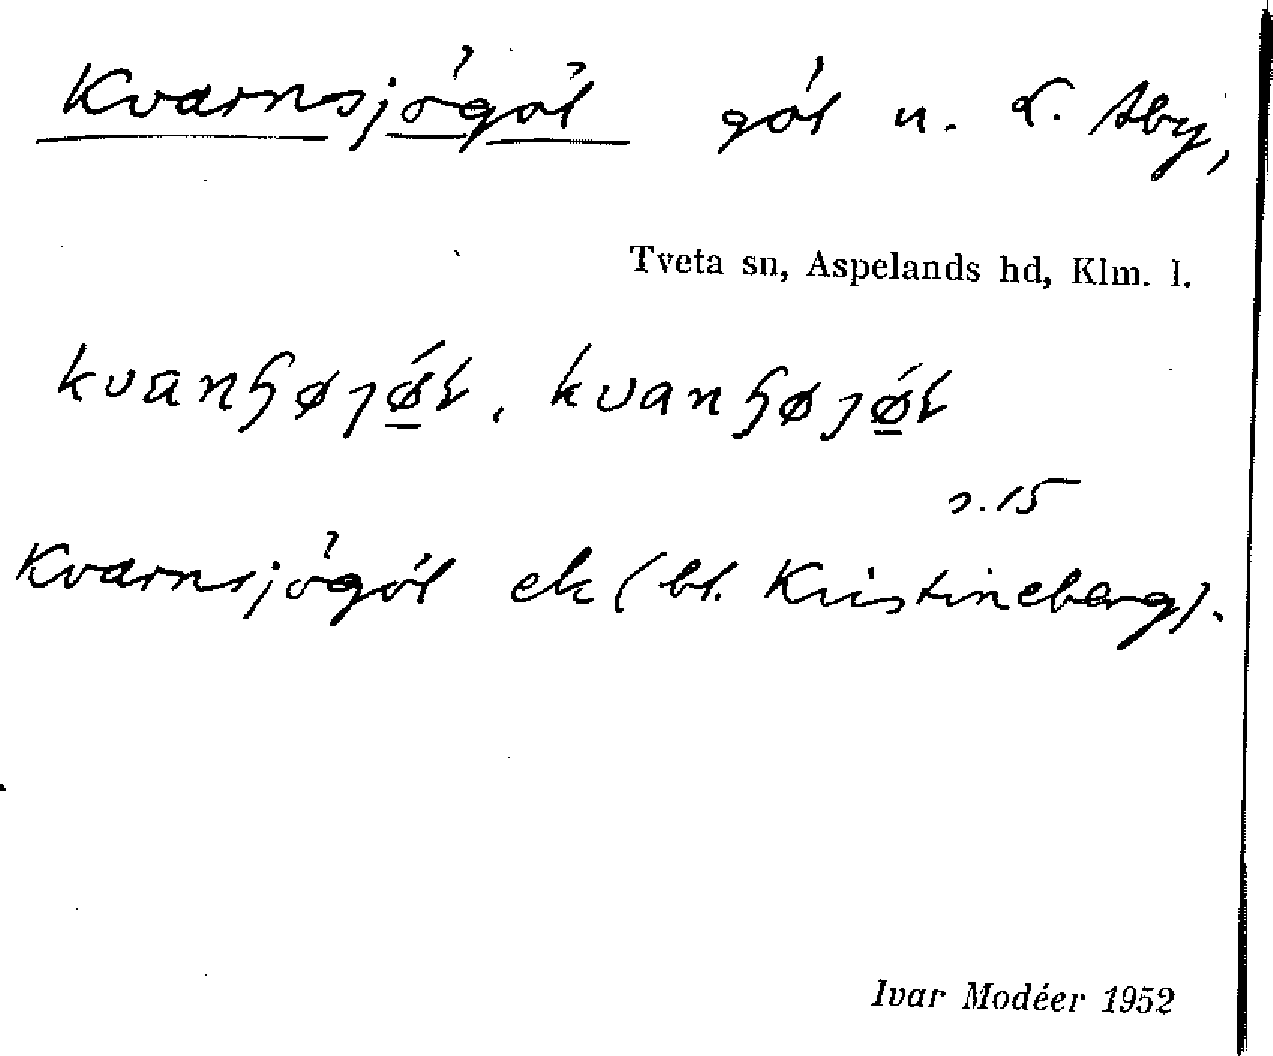 Kvarnsjögöl göl n. L. Åby,
Tveta sn, Aspelands hd, Klm. l.
s. 15
Kvarnsjögöl ek (bl. Kristineberg).
Ivar Modéer 1952